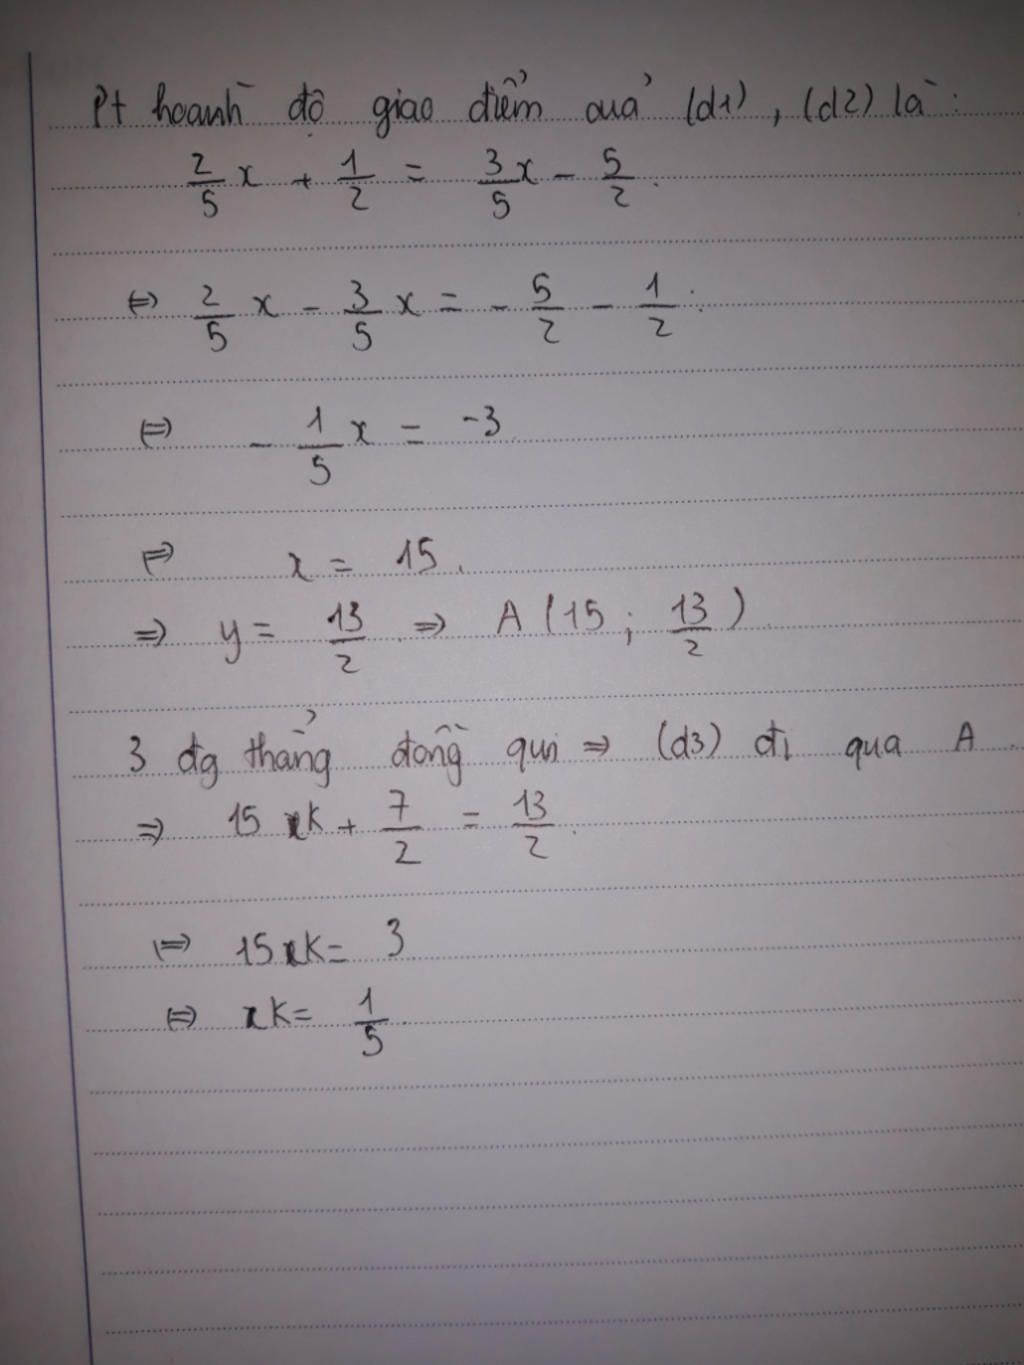 Pt hoành độ giao điểm của (d1), (d2) là:
2/5 x + 1/2 = 3/5 x - 5/2.
⇔ 2/5 x - 3/5 x = - 5/2 - 1/2.
⇔ - 1/5 x = -3
⇔ x = 15.
⇒ y = 13/2 ⇒ A (15; 13/2)
3 đg thẳng đồng qui ⇒ (d3) đi qua A.
⇒ 15 k + 7/2 = 13/2.
⇔ 15 k = 3
⇔ k = 1/5.